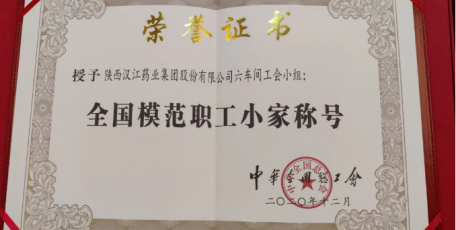 荣誉证书
授予陕西汉江药业集团股份有限公司六车间工会小组：
全国模范职工小家称号
中华全国总工会
二〇二〇年十二月